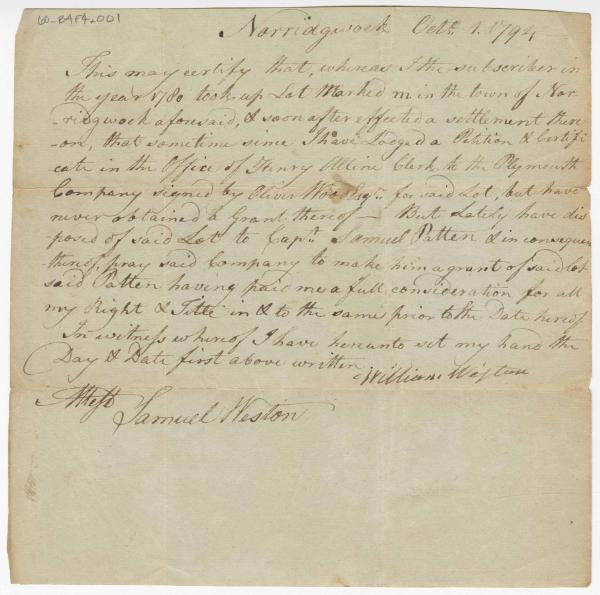 60-B4F4.001
Norridgwock Octr. 1. 1794
This may certify that, whereas I the subscriber in
the year 1780 took up Lot Marked m in the town of Nor-
-ridgwock aforesaid, & soon after effected a settlement there
-on, that sometime since I have Lodged a Petition & Certifi
cate in the Office of Henry Alline Clerk to the Plymouth
Company signed by Oliver Wood Esqr. for said Lot, but have
never obtained a Grant thereof — But Lately have dis
posed of said Lot to Capt. Samuel Patten & in consequen
thereof, pray said Company to make him a grant of said Lot
said Patten having paid me a full consideration for all
my Right & Title in & to the same prior to the Date hereof
In witness whereof I have hereunto set my hand the
Day & Date first above written
William Weston
Attest
Samuel Weston